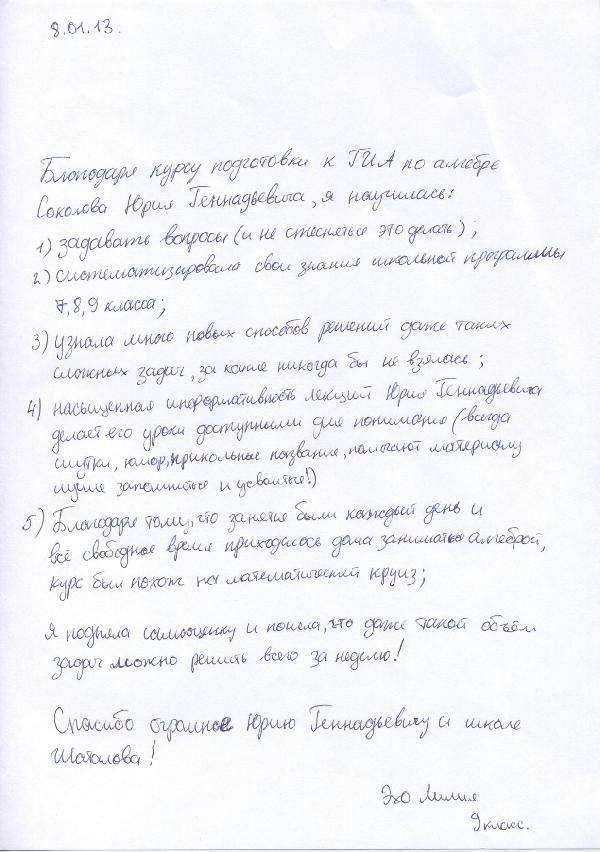 8.01.13.
Благодаря курсу подготовки к ГИА по алгебре
Соколова Юрия Геннадьевича, я научилась:
1) задавать вопросы (и не стесняться это делать);
2) систематизировала свои знания школьной программы
7,8,9 класса;
3) узнала много новых способов решений даже таких
сложных задач, за какие никогда бы не взялась;
4) насыщенная информативность лекций Юрия Геннадьевича
делает его уроки доступными для понимания (всегда
шутки, юмор, прикольные названия, помогают материалу
лучше запомниться и усвоиться!)
5) Благодаря тому, что занятие были каждый день и
всё свободное время приходилось дома заниматься алгеброй,
курс был похож на математический круиз;
Я подняла самооценку и поняла, что даже такой объём
задач можно решить всего за неделю!
Спасибо огромное Юрию Геннадьевичу и школе
Шаталова!
Эхо Лилия
9 класс.